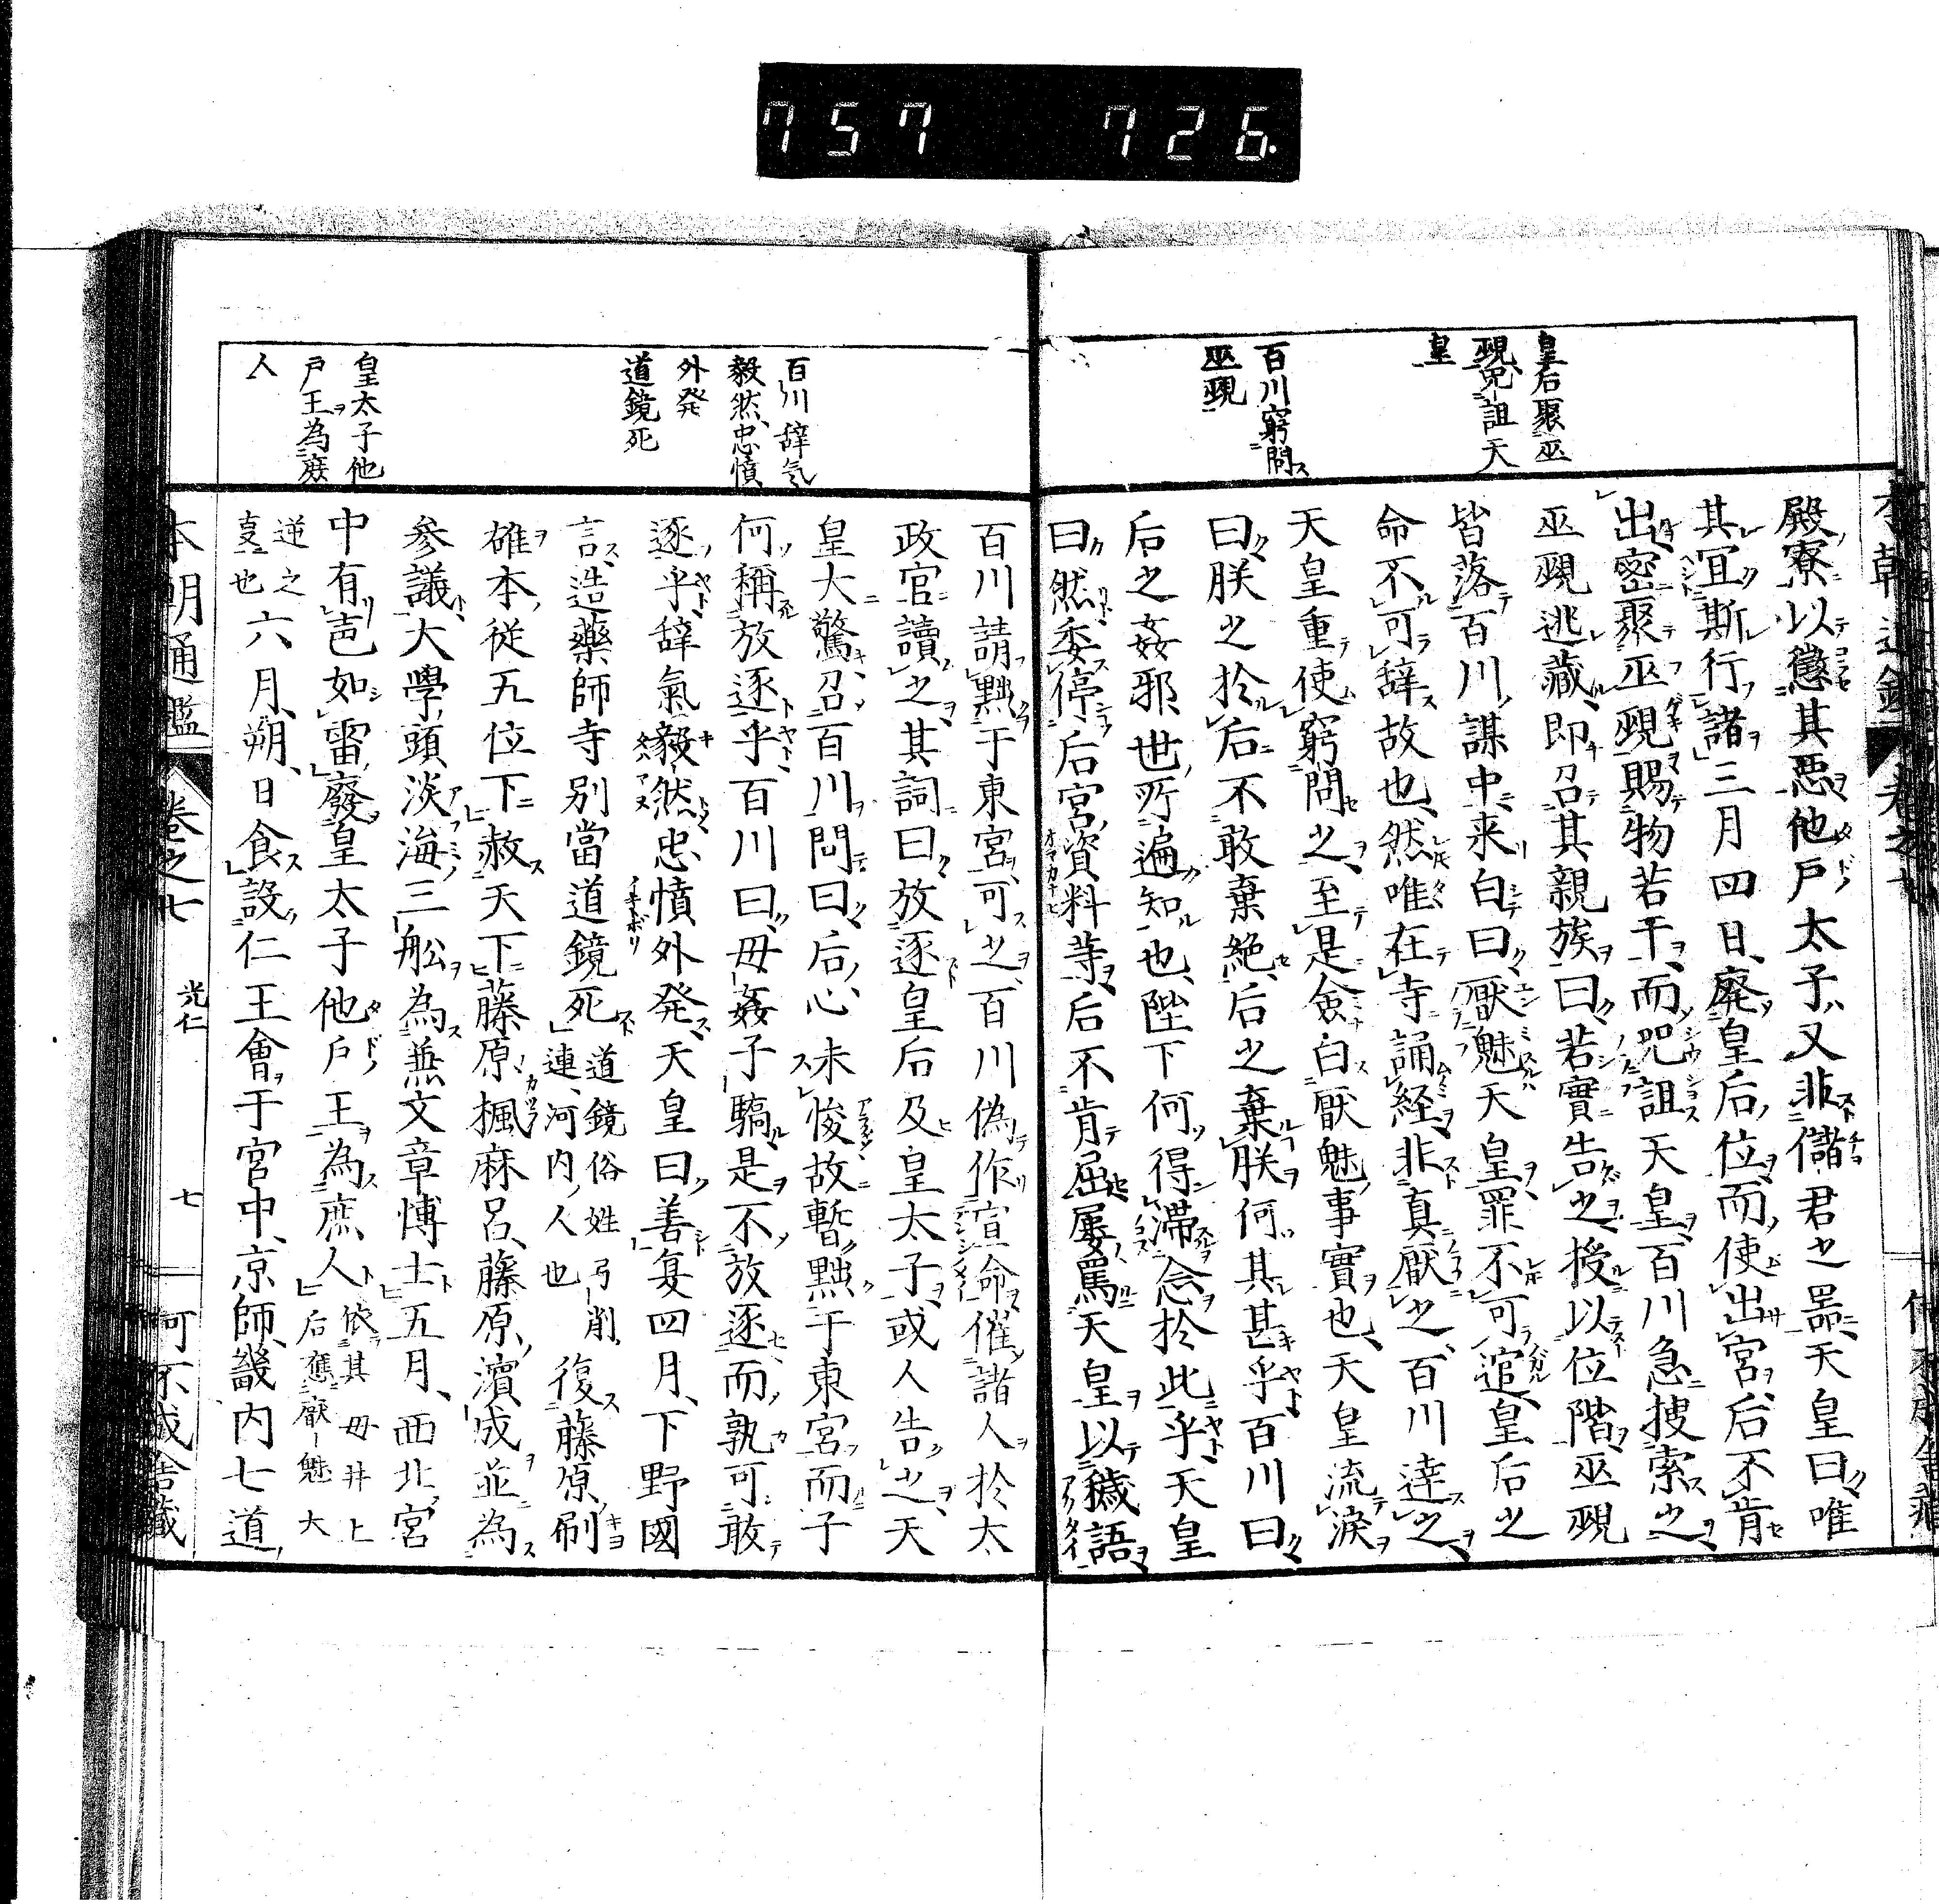 757 726.
皇后聚巫
覡咒詛天
皇
百川窮問
巫覡
殿寮以懲其惡他戶太子又非儲君之器天皇曰唯
其冝斯行諸三月四日廃皇后位而使出宮后不肯
出密聚巫覡賜物若干而咒詛天皇百川急捜索之
巫覡逃藏即召其親族曰若實告之授以位階巫覡
皆落百川謀中来白曰厭魅天皇罪不可逭皇后之
命不可辞故也然唯在寺誦経非真厭之百川達之
天皇重使窮問之至是僉白厭魅事實也天皇流涙
曰朕之於后不敢棄絶后之棄朕何其甚乎百川曰
后之姦邪世所遍知也陛下何得滞念於此乎天皇
曰然委停后宮資料等后不肯屈屢罵天皇以穢語
百川辞氣
毅然忠憤
外発
道鏡死
皇太子他
戸王為庶
人
百川請黜于東宮可之百川偽作宣命催諸人於太
政官讀之其詞曰放逐皇后及皇太子或人告之天
皇大驚召百川問曰后心未悛故暫黜于東宮而子
何稱放逐乎百川曰毋姦子驕是不放逐而孰可敢
逐乎辞氣毅然忠憤外発天皇曰善复四月下野國
言造藥師寺別當道鏡死道鏡俗姓弓削
連河内人也復藤原刷
雄本従五位下赦天下藤原楓麻呂藤原濵成並為
参議大學頭淡海三舩為兼文章博士五月西北宮
中有声如雷廢皇太子他戶王為庶人依其毋井上
后麼厭魅大
逆之
支也六月朔日食設仁王會于宮中京師畿内七道
本朝通鑑 卷之七 光仁 七